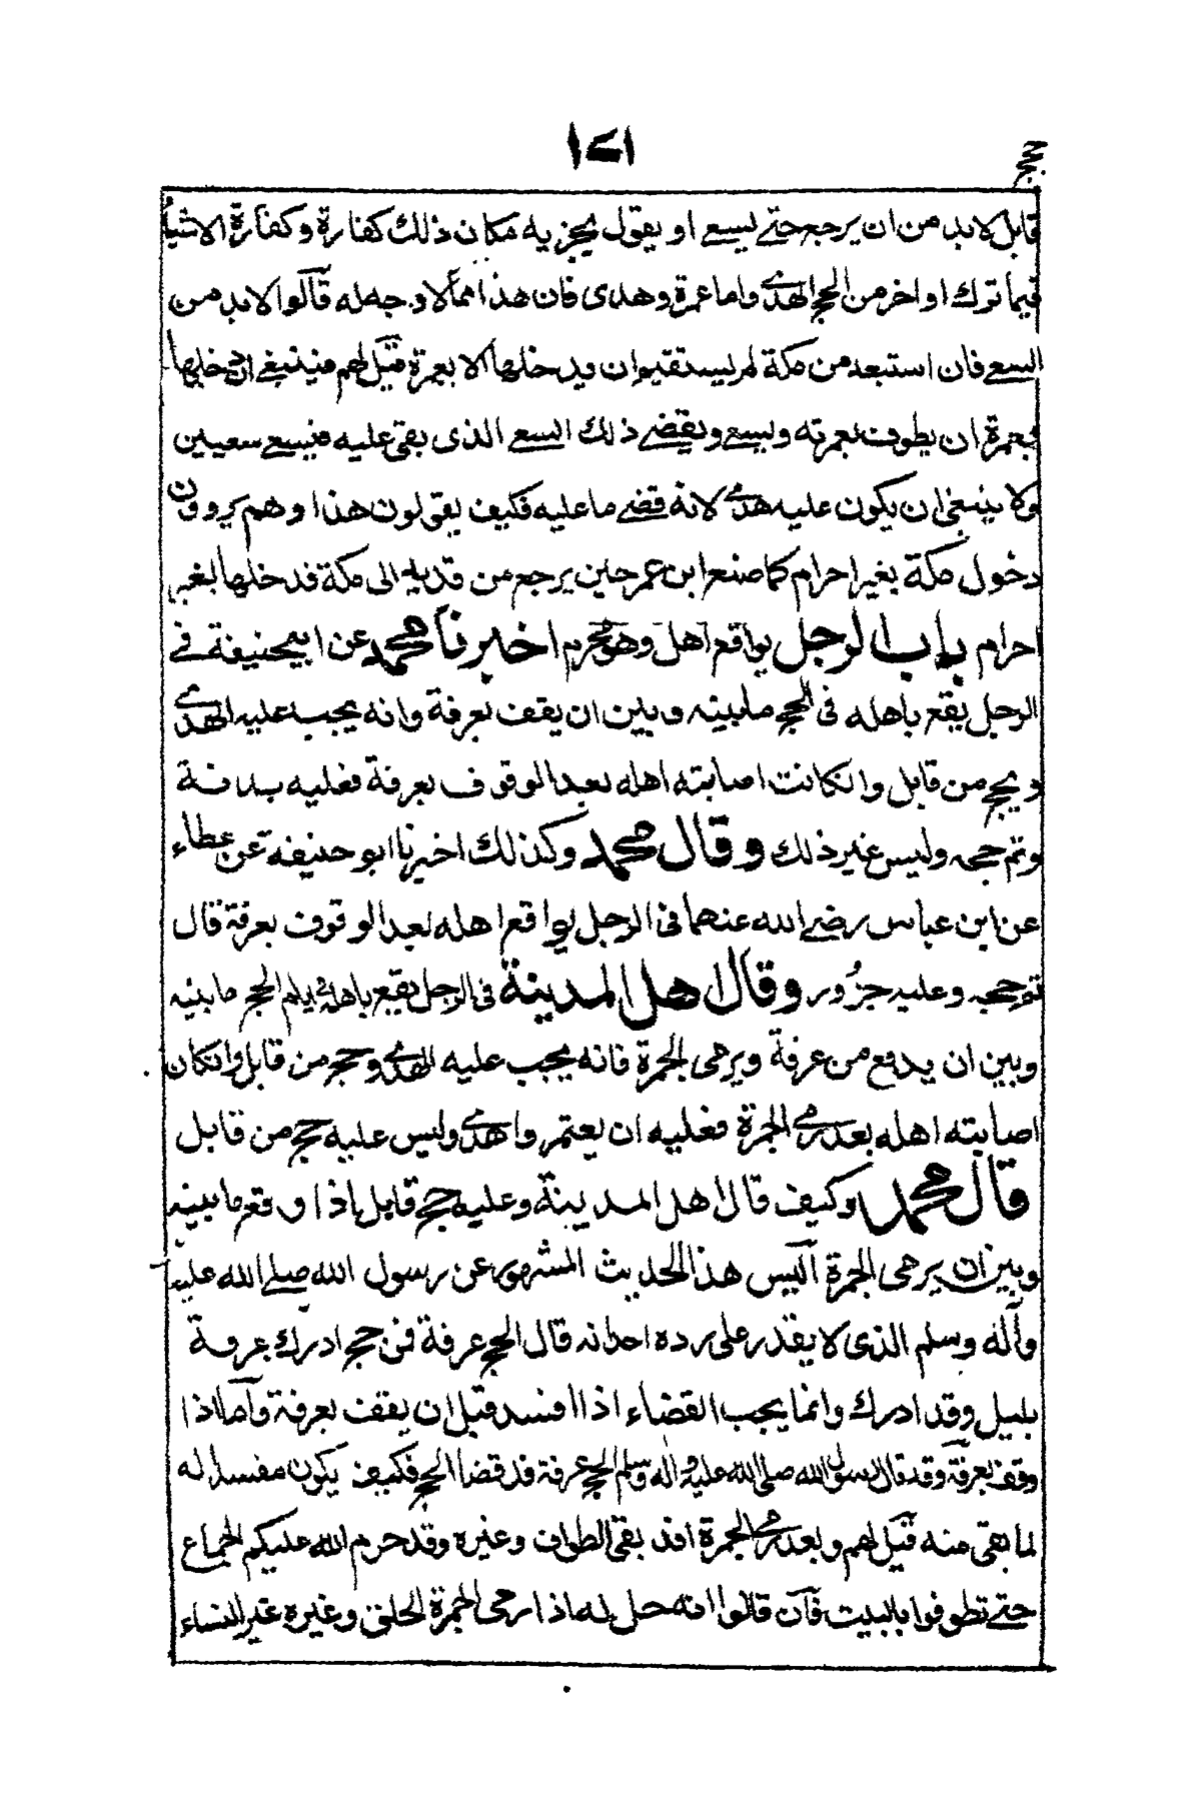 حج
١٤١
قابل لا بد من ان يرجع حتى يسعى او يقول يجزيه مكان ذلك كفارة وكفارة الاشياء
فيما ترك او اخر من الحج الهدى واما عمرة وهدى فان هذا مما لا وجه له قالوا لا بد من
السعى فان استبعد من مكة لم يستقم ان يدخلها الا بعمرة قيل لهم فينبغى ان دخلها
بعمرة ان يطوف بعمرته ويسعى ويقضى ذلك السعى الذى بقى عليه فيسعى سعيين
ولا ينبغى ان يكون عليه هدى لانه قضى ما عليه فكيف يقولون هذا وهم يروون
دخول مكة بغير احرام كما صنع ابن عمر حين يرجع من قديد الى مكة فدخلها بغير
احرام باب الرجل يواقع اهله وهو محرم اخبرنا محمد عن ابى حنيفة فى
الرجل يقع باهله فى الحج ما بينه وبين ان يقف بعرفة وانه يجب عليه الهدى
ويحج من قابل وان كانت اصابته اهله بعد الوقوف بعرفة فعليه بدنة
وتم حجه وليس غير ذلك وقال محمد وكذلك اخبرنا ابو حنيفة عن عطاء
عن ابن عباس رضى الله عنهما فى الرجل يواقع اهله بعد الوقوف بعرفة قال
تم حجه وعليه جزور وقال اهل المدينة فى الرجل يقع باهله فى ايام الحج ما بينه
وبين ان يدفع من عرفة ويرمى الجمرة فانه يجب عليه الهدى وحج من قابل وان كان
اصابته اهله بعد رمى الجمرة فعليه ان يعتمر واهدى وليس عليه حج من قابل
قال محمد وكيف قال اهل المدينة وعليه حج قابل اذا وقع ما بينه
وبين ان يرمى الجمرة اليس هذا الحديث المشهور عن رسول الله صلى الله عليه
وآله وسلم الذى لا يقدر على رده احد انه قال الحج عرفة فمن حج ادرك عرفة
بليل وقد ادرك وانما يجب القضاء اذا افسد قبل ان يقف بعرفة واما اذا
وقف بعرفة وقد قال رسول الله صلى الله عليه وآله وسلم الحج عرفة فقد قضا الحج فكيف يكون مفسدا له
لما بقى منه قيل لهم وبعد رمى الجمرة افقد بقى الطواف وغيره وقد حرم الله عليكم الجماع
حتى تطوفوا بالبيت فان قالوا انه حل له اذا رمى الجمرة الحلق وغيره غير النساء